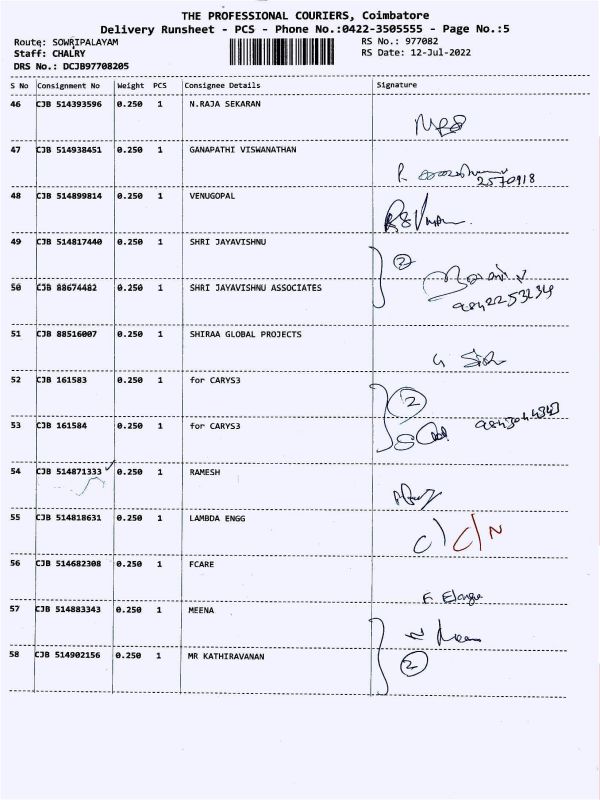 THE PROFESSIONAL COURIERS, Coimbatore
Delivery Runsheet - PCS - Phone No.:0422-3505555 - Page No.:5
Route: SOWRIPALAYAM RS No.: 977082
Staff: CHALRY RS Date: 12-Jul-2022
DRS No.: DCJB97708205
S No Consignment No Weight PCS Consignee Details Signature
46 CJB 514393596 0.250 1 N.RAJA SEKARAN
47 CJB 514938451 0.250 1 GANAPATHI VISWANATHAN
2570918
48 CJB 514899814 0.250 1 VENUGOPAL
49 CJB 514817440 0.250 1 SHRI JAYAVISHNU
2
50 CJB 88674482 0.250 1 SHRI JAYAVISHNU ASSOCIATES
9842253234
51 CJB 88516007 0.250 1 SHIRAA GLOBAL PROJECTS
52 CJB 161583 0.250 1 for CARYS3
2
53 CJB 161584 0.250 1 for CARYS3
54 CJB 514871333 0.250 1 RAMESH
55 CJB 514818631 0.250 1 LAMBDA ENGG
C/ C/N
56 CJB 514682308 0.250 1 FCARE
57 CJB 514883343 0.250 1 MEENA
58 CJB 514902156 0.250 1 MR KATHIRAVANAN
2